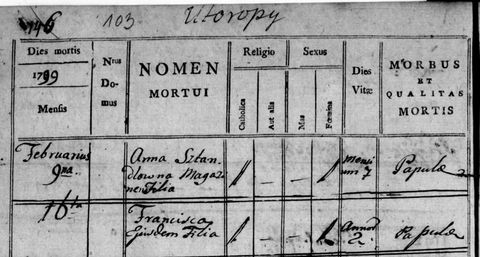 146 103 Utoropy
Dies mortis
1799
Mensis
Nrus
Do-
mus
NOMEN
MORTUI
Religio
Catholica
Aut alia
Sexus
Mas
Fœmina
Dies
Vitæ
MORBUS
ET
QUALITAS
MORTIS
Februarius
9na
Anna Sztan
dlowna Magaz
neri Filia
Mensi
um 7
Papulæ
16ta
Francisca
Ejusdem Filia
Annor
2.
Papulæ